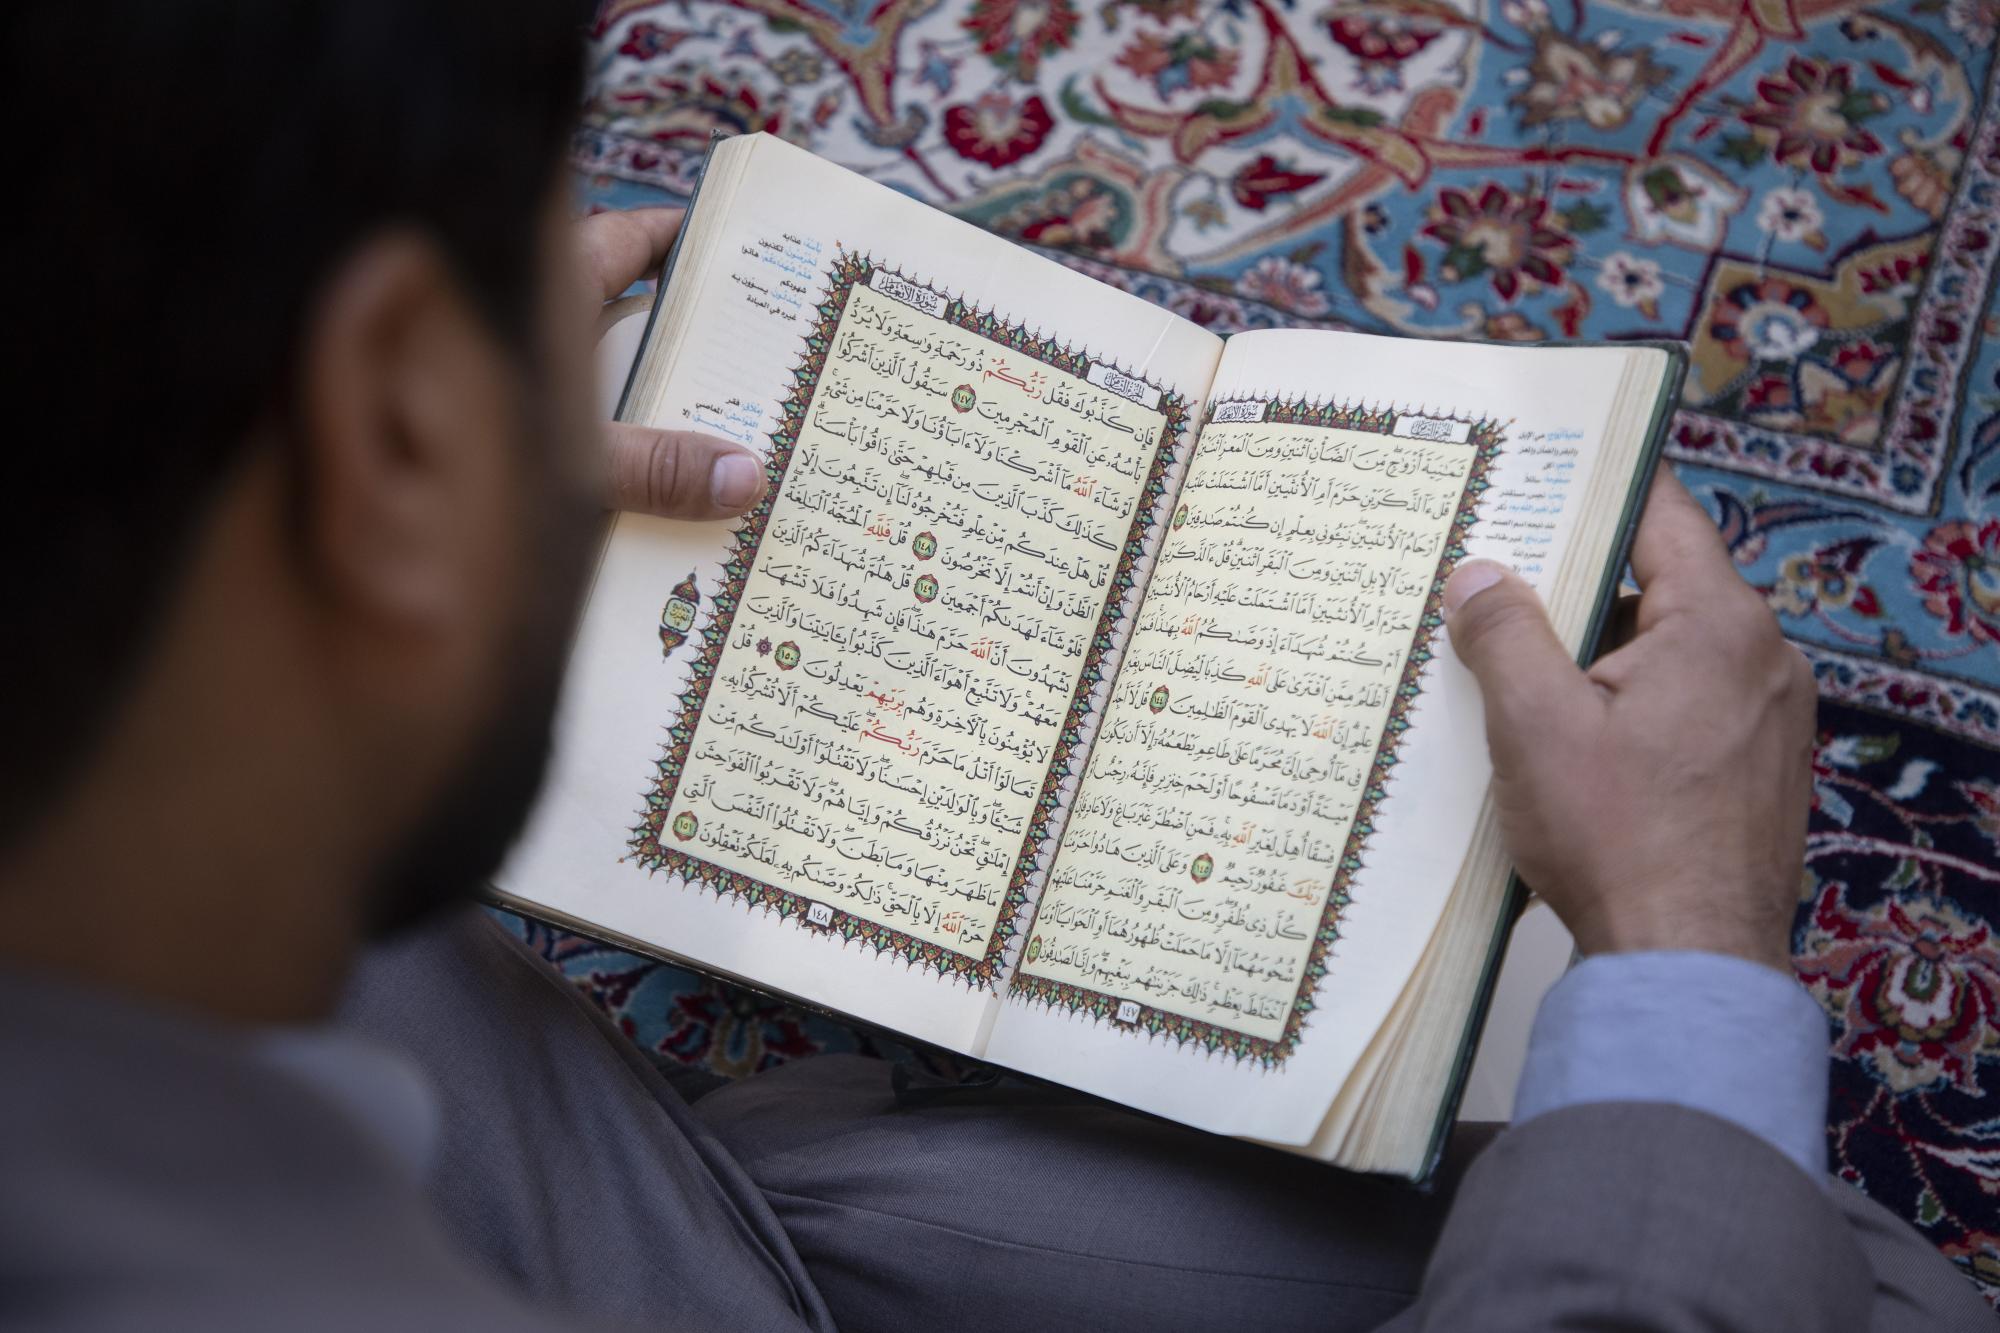 سورة الأنعام
الجزء الثامن
ثَمَٰنِيَةَ أَزْوَٰجٍ مِّنَ ٱلضَّأْنِ ٱثْنَيْنِ وَمِنَ ٱلْمَعْزِ ٱثْنَيْنِ
قُلْ ءَآلذَّكَرَيْنِ حَرَّمَ أَمِ ٱلْأُنثَيَيْنِ أَمَّا ٱشْتَمَلَتْ عَلَيْهِ
أَرْحَامُ ٱلْأُنثَيَيْنِ نَبِّـُٔونِى بِعِلْمٍ إِن كُنتُمْ صَٰدِقِينَ ١٤٣
وَمِنَ ٱلْإِبِلِ ٱثْنَيْنِ وَمِنَ ٱلْبَقَرِ ٱثْنَيْنِ قُلْ ءَآلذَّكَرَيْنِ
حَرَّمَ أَمِ ٱلْأُنثَيَيْنِ أَمَّا ٱشْتَمَلَتْ عَلَيْهِ أَرْحَامُ ٱلْأُنثَيَيْنِ
أَمْ كُنتُمْ شُهَدَآءَ إِذْ وَصَّىٰكُمُ ٱللَّهُ بِهَٰذَا فَمَنْ
أَظْلَمُ مِمَّنِ ٱفْتَرَىٰ عَلَى ٱللَّهِ كَذِبًا لِّيُضِلَّ ٱلنَّاسَ بِغَيْرِ
عِلْمٍ إِنَّ ٱللَّهَ لَا يَهْدِى ٱلْقَوْمَ ٱلظَّٰلِمِينَ ١٤٤ قُل لَّآ أَجِدُ
فِى مَآ أُوحِىَ إِلَىَّ مُحَرَّمًا عَلَىٰ طَاعِمٍ يَطْعَمُهُۥٓ إِلَّآ أَن يَكُونَ
مَيْتَةً أَوْ دَمًا مَّسْفُوحًا أَوْ لَحْمَ خِنزِيرٍ فَإِنَّهُۥ رِجْسٌ أَوْ
فِسْقًا أُهِلَّ لِغَيْرِ ٱللَّهِ بِهِۦ فَمَنِ ٱضْطُرَّ غَيْرَ بَاغٍ وَلَا عَادٍ فَإِنَّ
رَبَّكَ غَفُورٌ رَّحِيمٌ ١٤٥ وَعَلَى ٱلَّذِينَ هَادُوا۟ حَرَّمْنَا
كُلَّ ذِى ظُفُرٍ وَمِنَ ٱلْبَقَرِ وَٱلْغَنَمِ حَرَّمْنَا عَلَيْهِمْ
شُحُومَهُمَآ إِلَّا مَا حَمَلَتْ ظُهُورُهُمَآ أَوِ ٱلْحَوَايَآ أَوْ مَا
ٱخْتَلَطَ بِعَظْمٍ ذَٰلِكَ جَزَيْنَٰهُم بِبَغْيِهِمْ وَإِنَّا لَصَٰدِقُونَ ١٤٦
١٤٧
سورة الأنعام
الجزء الثامن
فَإِن كَذَّبُوكَ فَقُل رَّبُّكُمْ ذُو رَحْمَةٍ وَٰسِعَةٍ وَلَا يُرَدُّ
بَأْسُهُۥ عَنِ ٱلْقَوْمِ ٱلْمُجْرِمِينَ ١٤٧ سَيَقُولُ ٱلَّذِينَ أَشْرَكُوا۟
لَوْ شَآءَ ٱللَّهُ مَآ أَشْرَكْنَا وَلَآ ءَابَآؤُنَا وَلَا حَرَّمْنَا مِن شَىْءٍ
كَذَٰلِكَ كَذَّبَ ٱلَّذِينَ مِن قَبْلِهِمْ حَتَّىٰ ذَاقُوا۟ بَأْسَنَا
قُلْ هَلْ عِندَكُم مِّنْ عِلْمٍ فَتُخْرِجُوهُ لَنَآ إِن تَتَّبِعُونَ إِلَّا
ٱلظَّنَّ وَإِنْ أَنتُمْ إِلَّا تَخْرُصُونَ ١٤٨ قُلْ فَلِلَّهِ ٱلْحُجَّةُ ٱلْبَٰلِغَةُ
فَلَوْ شَآءَ لَهَدَىٰكُمْ أَجْمَعِينَ ١٤٩ قُلْ هَلُمَّ شُهَدَآءَكُمُ ٱلَّذِينَ
يَشْهَدُونَ أَنَّ ٱللَّهَ حَرَّمَ هَٰذَا فَإِن شَهِدُوا۟ فَلَا تَشْهَدْ
مَعَهُمْ وَلَا تَتَّبِعْ أَهْوَآءَ ٱلَّذِينَ كَذَّبُوا۟ بِـَٔايَٰتِنَا وَٱلَّذِينَ
لَا يُؤْمِنُونَ بِٱلْـَٔاخِرَةِ وَهُم بِرَبِّهِمْ يَعْدِلُونَ ١٥٠ ۞ قُلْ
تَعَالَوْا۟ أَتْلُ مَا حَرَّمَ رَبُّكُمْ عَلَيْكُمْ أَلَّا تُشْرِكُوا۟ بِهِۦ
شَيْـًٔا وَبِٱلْوَٰلِدَيْنِ إِحْسَٰنًا وَلَا تَقْتُلُوٓا۟ أَوْلَٰدَكُم مِّنْ
إِمْلَٰقٍ نَّحْنُ نَرْزُقُكُمْ وَإِيَّاهُمْ وَلَا تَقْرَبُوا۟ ٱلْفَوَٰحِشَ
مَا ظَهَرَ مِنْهَا وَمَا بَطَنَ وَلَا تَقْتُلُوا۟ ٱلنَّفْسَ ٱلَّتِى
حَرَّمَ ٱللَّهُ إِلَّا بِٱلْحَقِّ ذَٰلِكُمْ وَصَّىٰكُم بِهِۦ لَعَلَّكُمْ تَعْقِلُونَ ١٥١
١٤٨
بأسه: عذابه
تخرصون: تكذبون
هلم شهداءكم: هاتوا
شهودكم
يعدلون: يسوون به
غيره في العبادة
إملاق: فقر
الفواحش: المعاصي